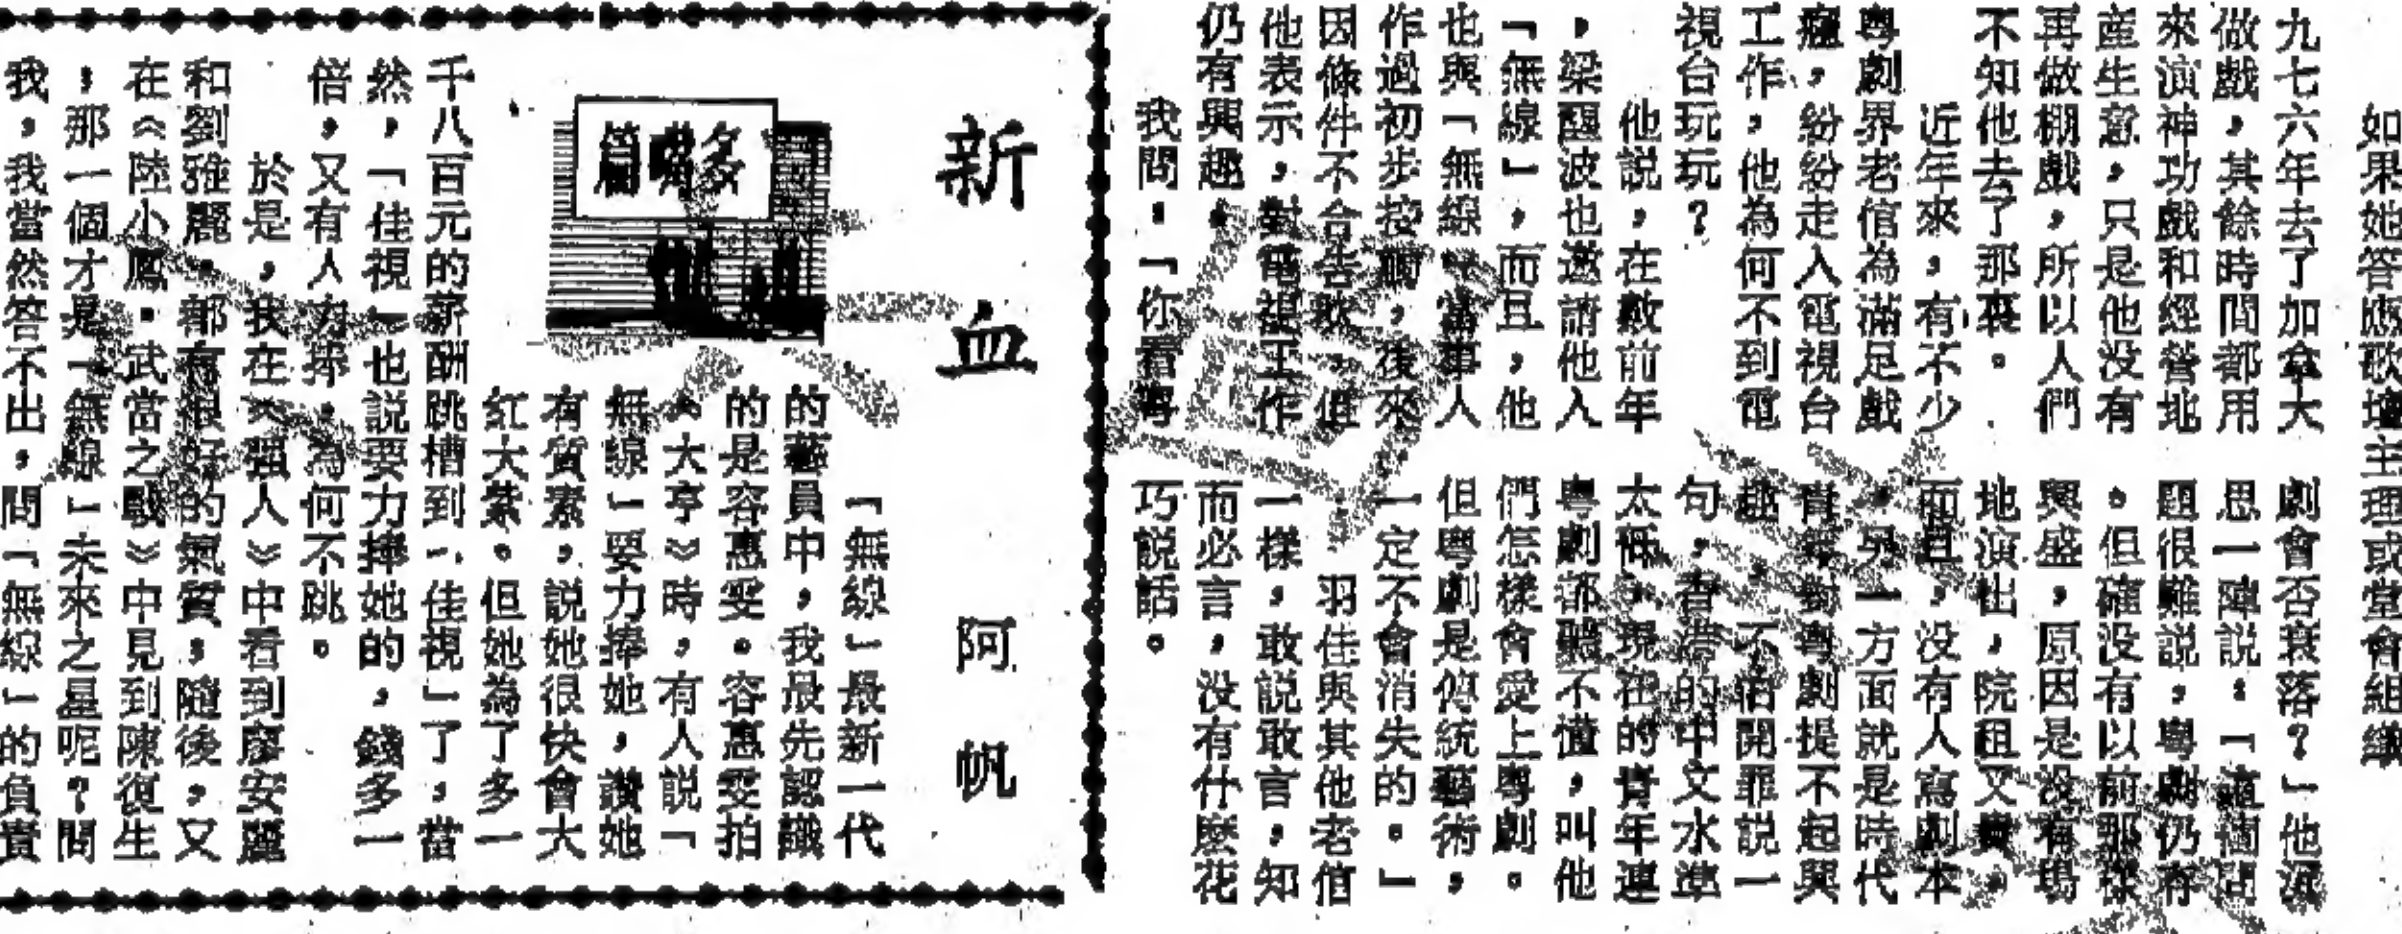 如果她答應歌壇主理或堂會組織
九七六年去了加拿大
做戲,其餘時間都用
來演神功戲和經營地
產生意,只是他没有
再做棚戲,所以人們
不知他去了那裏。
近年來,有不少
粵劇界老倌為滿足戲
癮,紛紛走入電視台
工作,他為何不到電
視台玩玩?
他説,在數前年
,梁醒波也邀請他入
「無線」,而且,他
也與「無線」當事人
作過初步接觸,後來
因條件不合告吹。但
他表示,對電視工作
仍有興趣。
我問:「你看粵
劇會否衰落?」他沉
思一陣説:「這個問
題很難説,粵劇仍存
。但確没有以前那樣
興盛,原因是没有場
地演出,院租又貴。
而且,没有人寫劇本
。另一方面就是時代
青年對粵劇提不起興
趣。不怕開罪説一
句,香港的中文水準
太低,現在的青年連
粵劇都聽不懂,叫他
們怎樣會愛上粵劇。
但粵劇是傳統藝術,
一定不會消失的。」
羽佳與其他老倌
一樣,敢説敢言,知
而必言,没有什麼花
巧説話。
新血
阿帆
多嘴篇
「無線」最新一代
的藝員中,我最先認識
的是容惠雯。容惠雯拍
《大亨》時,有人説「
無線」要力捧她,讚她
有質素,説她很快會大
紅大紫。但她為了多一
千八百元的薪酬跳槽到「佳視」了,當
然,「佳視」也説要力捧她的,錢多一
倍,又有人力捧,為何不跳。
於是,我在《強人》中看到廖安麗
和劉雅麗,都有很好的氣質,隨後,又
在《陸小鳳·武當之戰》中見到陳復生
,那一個才是「無線」未來之星呢?問
我,我當然答不出,問「無線」的負責